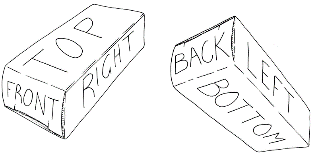 TOP
FRONT
RIGHT
BACK
LEFT
BOTTOM